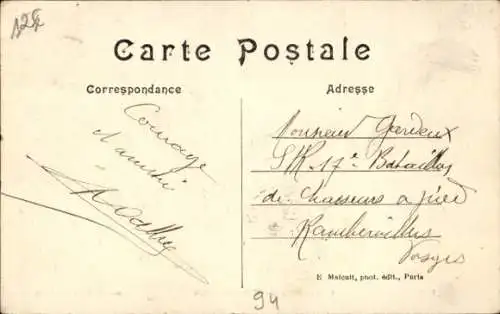 Carte Postale
Correspondance
Adresse
Courage
et amitié
Monsieur Gardeux
17e Bataillon
de Chasseurs a pied
Rambervillers
Vosges
E Malcuit, phot. édit., Paris
94